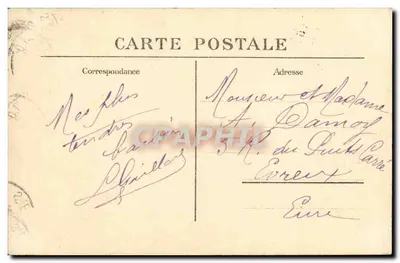 CARTE POSTALE
Correspondance
Mes plus
tendres
baisers
Adresse
Monsieur et Madame
A. Damoy
3 R. du Puits Carré
Evreux
Eure